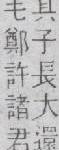 其子長大還
毛鄭許諸君